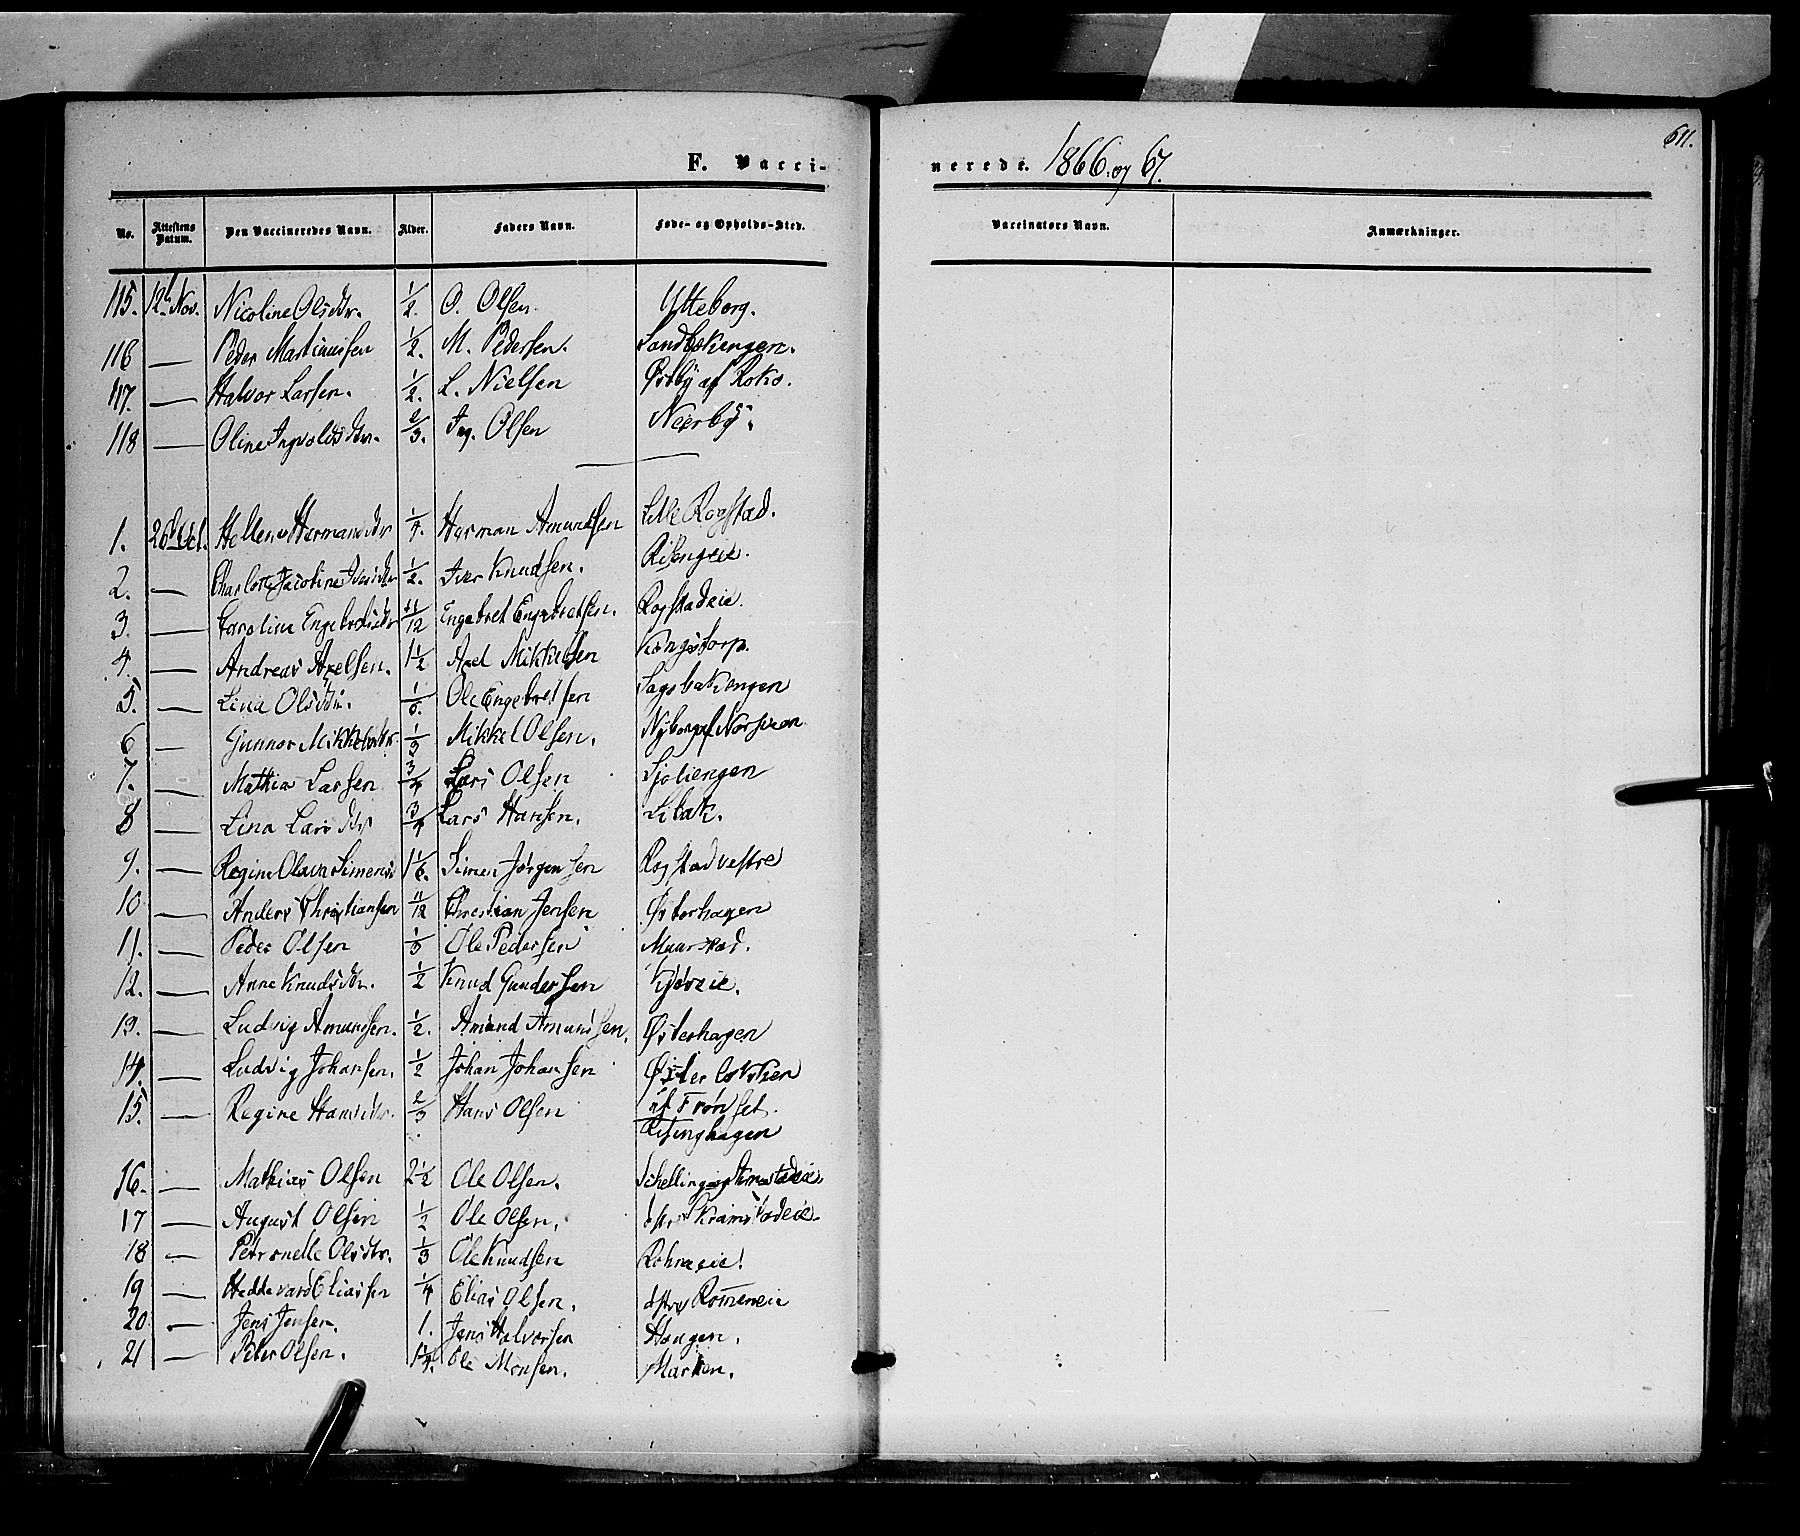 611.
F. Vaccinerede. 1866. og 67.
No. Attestens Datum. Den Vaccineredes Navn. Alder. Faders Navn. Føde- og Opholds-Sted. Vaccinators Navn. Anmærkninger.
115. 12t Nov. Nicoline Olsdtr. 1/2. O. Olsen. Utteborg.
116 — Peder Martinussen 1/2. M. Pedersen. Sandbekengen.
117. — Halvor Larsen. 1/2. L. Nielsen Østby af Roko.
118 — Oline Ingvoldsdtr. 2/3. Ing. Olsen Neerby.
1. 26t Oct. Hellene Hermansdtr 1/4. Herman Amundsen Lille Rogstad.
2. — Charlotte Jacobine Iversdtr 1/2. Iver Knudsen. Risengeie.
3. — Caroline Engebretsdtr 11/12 Engebret Engebretsen. Rogstadeie.
4. — Andreas Axelsen. 1 1/2 Axel Mikkelsen Kongstorp.
5. — Lina Olsdtr. 1/6. Ole Engebretsen Sagbakengen
6 — Gunnor Mikkelsdtr. 1/3 Mikkel Olsen. Nyborg af Norsveen
7. — Mathia Larsen 3/4 Lars Olsen Sjoliengen
8 — Lina Larsdtr 3/4 Lars Hansen. Libak.
9. — Regine Olava Simensd 1 1/6. Simen Jörgensen Rogstad vestre
10 — Anders Christiansen 11/12 Christian Jensen Østerhagen
11. — Peder Olsen 1/3 Ole Pedersen Maurstad.
12. — Anne Knudsdtr. 1/2 Knud Gundersen Kjøseie.
13. — Ludvig Amundsen. 1/2. Amund Amundsen. Østerhagen
14. — Ludvig Johansen. 1/2 Johan Johansen Øster
af Frønset.
15. — Regine Hansdtr. 2/3 Hans Olsen Risinghagen
16. — Mathias Olsen 2 1/2 Ole Olsen. Schelling
17 — August Olsen 1/2 Ole Olsen. østre Kramstadeie.
18 — Petronelle Olsdtr. 1/3 Ole Knudsen
19 — Heddevard Eliassen 1/4 Elias Olsen. østre Romeneie
20 — Jens Jensen. 1. Jens Halvorsen Haugen.
21 — Peter Olsen. 1 1/4. Ole Monsen. Marken.